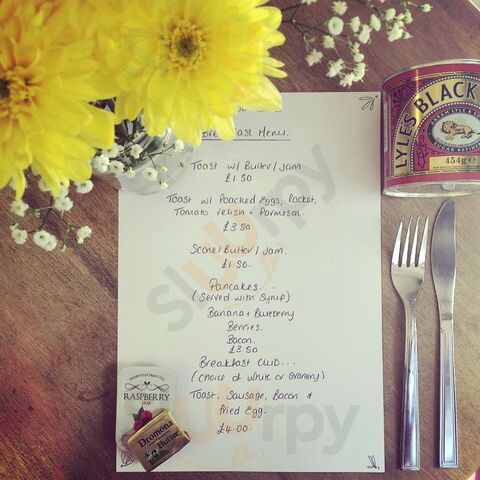 Breakfast Menu.
Toast w/ Butter/Jam
£1.50
Toast w/ Poached Eggs, Rocket,
Tomato relish + Parmesan.
£3.50
Scone/Butter/Jam.
£1.50.
Pancakes...
(Served with Syrup)
Banana + Blueberry
Berries.
Bacon.
£3.50
Breakfast Club...
(Choice of White or Granary)
Toast, Sausage, Bacon &
Fried Egg.
£4.00.
LYLES BLACK
454g e
RASPBERRY
JAM
Dromona
Butter
slurpy
slurpy